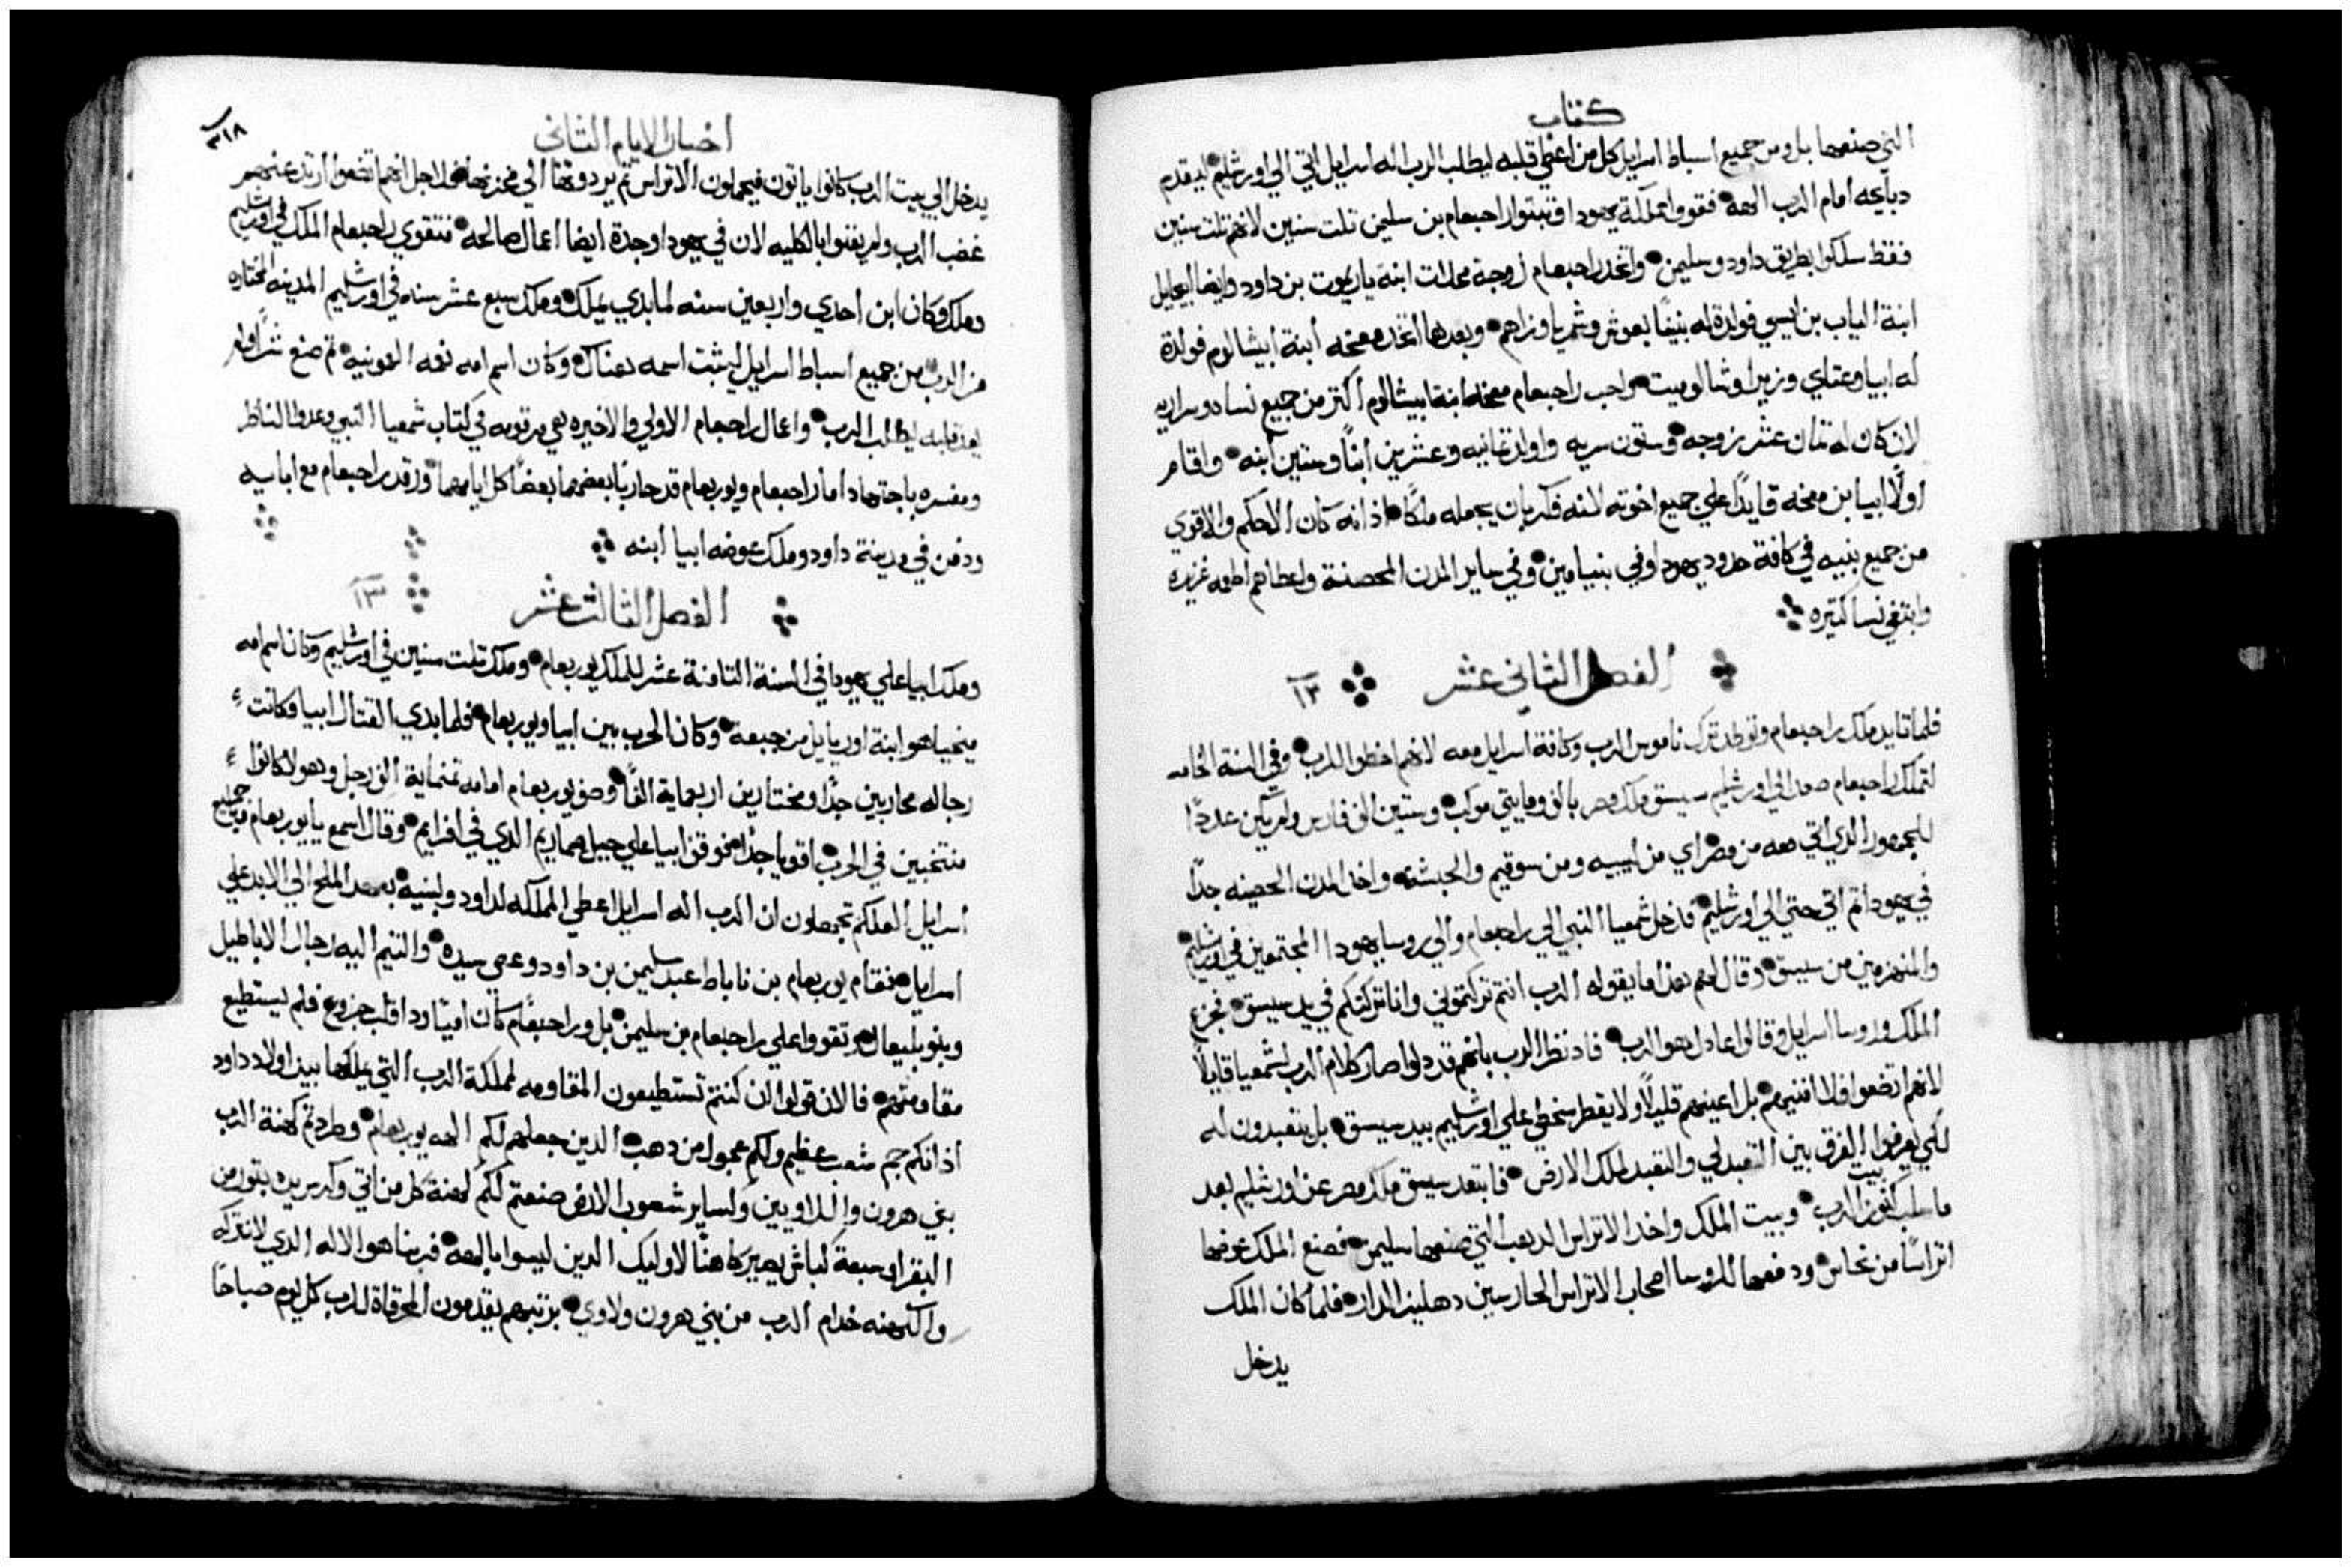 كتاب
التي صنعها بل ومن جميع اسباط اسرايل كل من اعطي قلبه ليطلب الرب اله اسرايل اتي الي اورشليم ليقدم
دبايحه امام الرب الهه فقووا مملكة يهودا وثبتوا راحبعام بن سليمن تلت سنين لانهم تلت سنين
فقط سلكوا بطريق داود وسليمن واتخد راحبعام زوجة محلات ابنة ياريموت بن داود وايضا ابيحايل
ابنة الياب بن ايسي فولدة له بنيناً يعوش وشمريا وزاهم وبعدها اتخد معخه أبنة أبيشالوم فولدة
له ابيا وعتاي وزيزا وشالوميت واحب راحبعام معخه ابنة ابيشالوم أكتر من جميع نساه وسراريه
لان كان له تمان عشر زوجه وستون سريه واولد تمانيه وعشرين أبناً وستين أبنه واقام
اولاً ابيا بن معخه قايداً علي جميع اخوته لانه فكر بان يجعله ملكاً اذ انه كان ألاحكم والاقوي
من جميع بنيه في كافة حدود يهودا وفي بنيامين وفي ساير المدن المحصنة واعطاهم اطعمه غزيره
وابتغي نسا كتيره
ألفصل الثاني عشر ١٢
فلما تايد ملك راحبعام وتوطد ترك ناموس الرب وكافة اسرايل معه لانهم اخطوا للرب وفي السنة الخامسه
لتملك راحبعام صعد الي اورشليم سيسق ملك مصر بالف ومايتي موكب وستين الف فارس ولم يكن عدداً
للجمهور الذي اتي معه من مصر اي من ليبيه ومن سوقيم والحبشه واخد المدن الحصينه جداً
في يهودا تم اتي حتي الي اورشليم فدخل شمعيا النبي الي راحبعام والي روسا يهودا المجتمعين في اورشليم
والمنهزمين من سيسق وقال لهم هذا ما يقوله الرب انتم تركتموني وانا تركتكم في يد سيسق فجزع
الملك وروسا اسرايل وقالوا عادل هو الرب فاد نظر الرب بانهم قد دلوا صار كلام الرب لشمعيا قايلاً
لانهم اتضعوا فلا افنيهم بل اعينهم قليلاً ولا يقطر سخطي علي اورشليم بيد سيسق بل يتعبدون له
لكي يعرفوا الفرق بين التعبد لي والتعبد لملك الارض فابتعد سيسق ملك مصر عن اورشليم بعد
ما سلب كنوز بيت الرب وبيت الملك واخد الاتراس الدهب التي صنعها سليمن فصنع الملك عوضها
اتراساً من نحاس ودفعها لروسا اصحاب الاتراس الحارسين دهليز الدار فلما كان الملك
يدخل
اخبار الايام الثاني
٣١٨
يدخل الي بيت الرب كانوا ياتون فيحملون الاتراس تم يردوها الي مخزنها فلاجل انهم اتضعوا أرتد عنهم
غضب الرب ولم يفنوا بالكليه لان في يهودا وجدة ايضا اعمال صالحه فتقوي راحبعام الملك في اورشليم
وملك وكان ابن احدي واربعين سنه لما بدي يملك وملك سبع عشر سنه في اورشليم المدينه المختاره
من الرب من جميع اسباط اسرايل ليثبت اسمه هناك وكان اسم امه نعمه العمونيه تم صنع شراً ولم
يعد قلبه ليطلب الرب واعمال راحبعام الاولي والاخيره هي مرقومه في كتاب شمعيا النبي وعدوا الناظر
ومفسره باجتهاد أما راحبعام ويوربعام قد حاربا بعضهما بعضاً كل ايامهما ورقد راحبعام مع ابايه
ودفن في مدينة داود وملك عوضه ابيا أبنه
ألفصل ألثالث عشر ١٣
وملك ابيا علي يهودا في السنة التامنة عشر للملك يوربعام وملك تلت سنين في اورشليم وكان اسم امه
ميخيا هو ابنة اوريايل من جبعه وكان الحرب بين ابيا ويوربعام فلما بدي القتال ابيا وكانت
رجاله محاربين جداً ومختارين اربعماية الفاً وصف يوربعام امامه تمنماية الف رجل وهولا كانوا
منتخبين في الحرب اقويا جداً فوقف ابيا علي جبل صماريم الذي في افرايم وقال اسمع يا يوربعام وجميع
اسرايل ألعلكم تجهلون ان الرب اله اسرايل اعطي المملكه لداود ولبنيه بعهد الملح الي الابد علي
اسرايل فقام يوربعام بن ناباط عبد سليمن بن داود وعصي سيده والتيم اليه رجال الاباطيل
وبنو بليعال وتقووا علي راحبعام بن سليمن بل وراحبعام كان امياً ودا قلب جزوع فلم يستطيع
مقاومتهم فالان قولوا ان كنتم تستطيعون المقاومه لمملكة الرب ألتي يملكها بيد اولاد داود
أذ انكم جم شعب عظيم ولكم عجول من دهب ألدين جعلهم لكم الهه يوربعام وطردتم كهنة الرب
بني هرون واللاويين ولساير شعوب الارض صنعتم لكم كهنة كل من اتي وكرس يده بتور من
البقر او سبعة كباش يصير كاهناً لاوليك الدين ليسوا بالهه فربنا هو الاله الدي لا نتركه
والكهنه خدام الرب من بني هرون ولاوي برتبهم يقدمون المحرقاة للرب كل يوم صباحاً